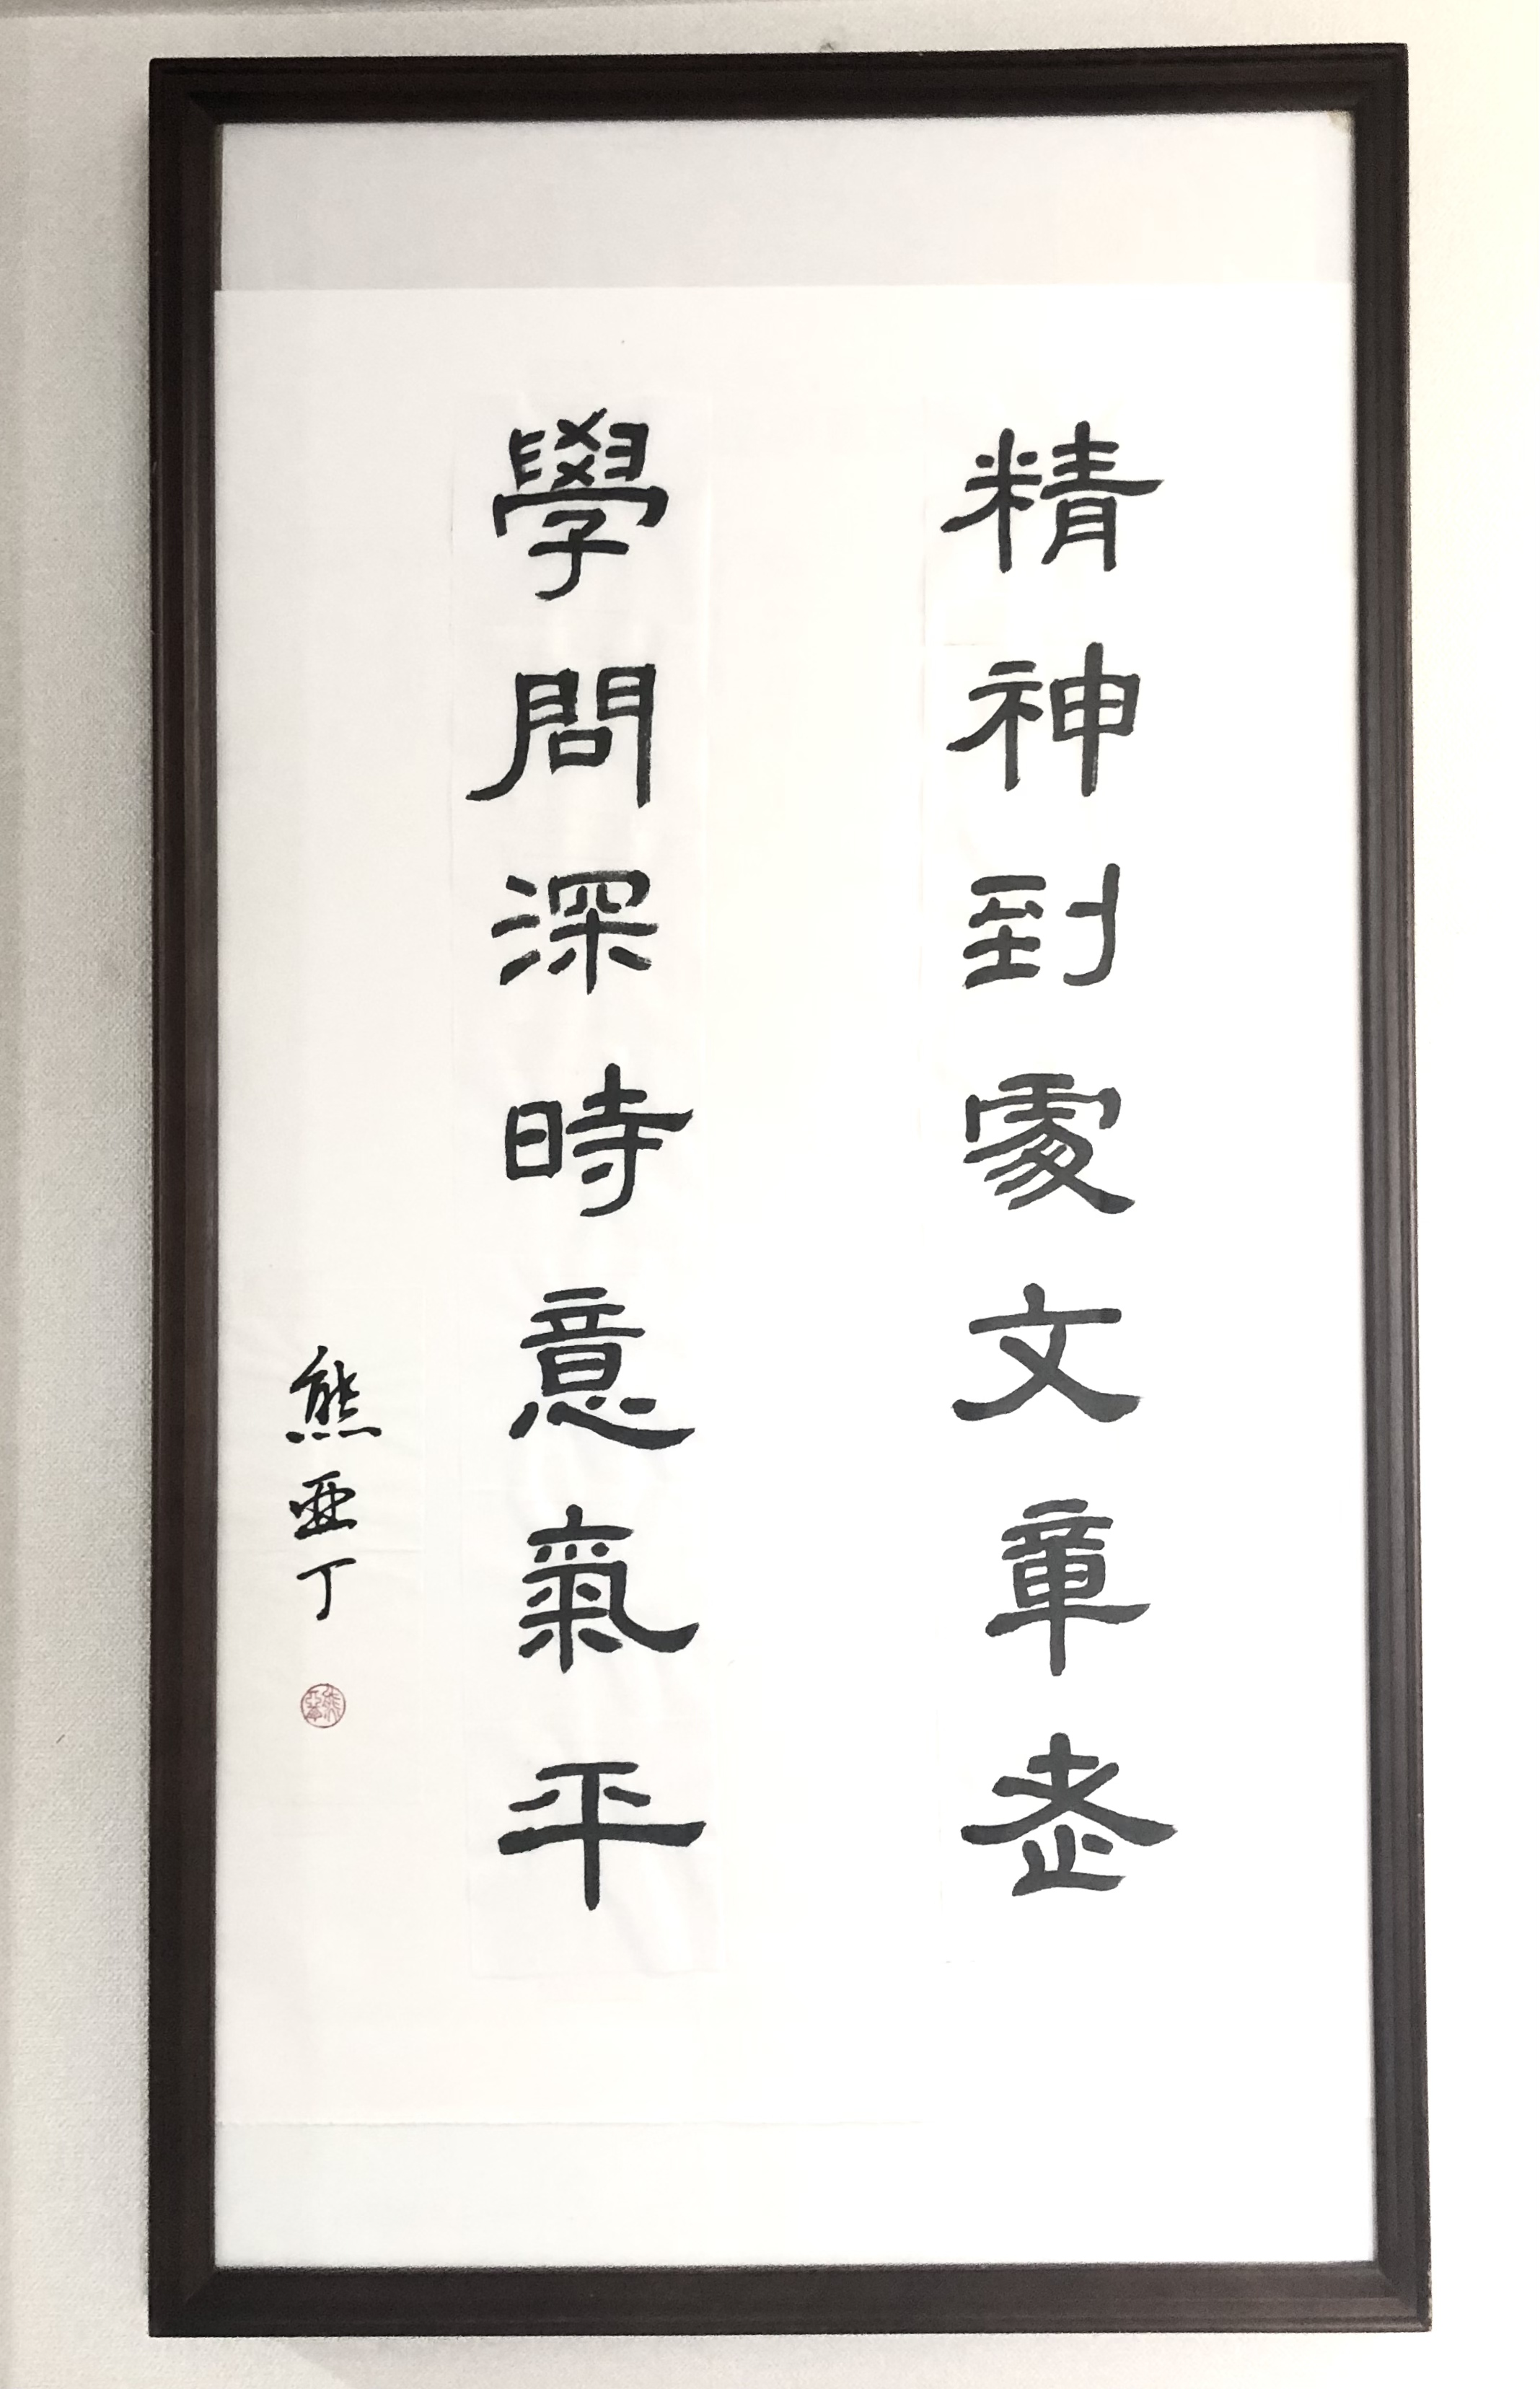 精神到處文章老
學問深時意氣平
熊亞丁